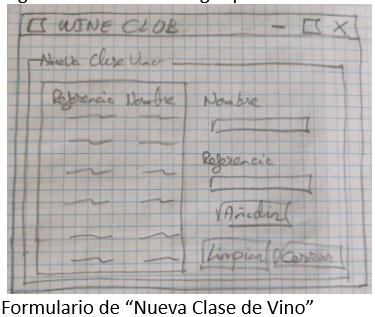 WINE CLUB
Nueva Clase Vino
Referencia Nombre
Nombre
Referencia
Añadir
Limpiar Cerrar
Formulario de “Nueva Clase de Vino”